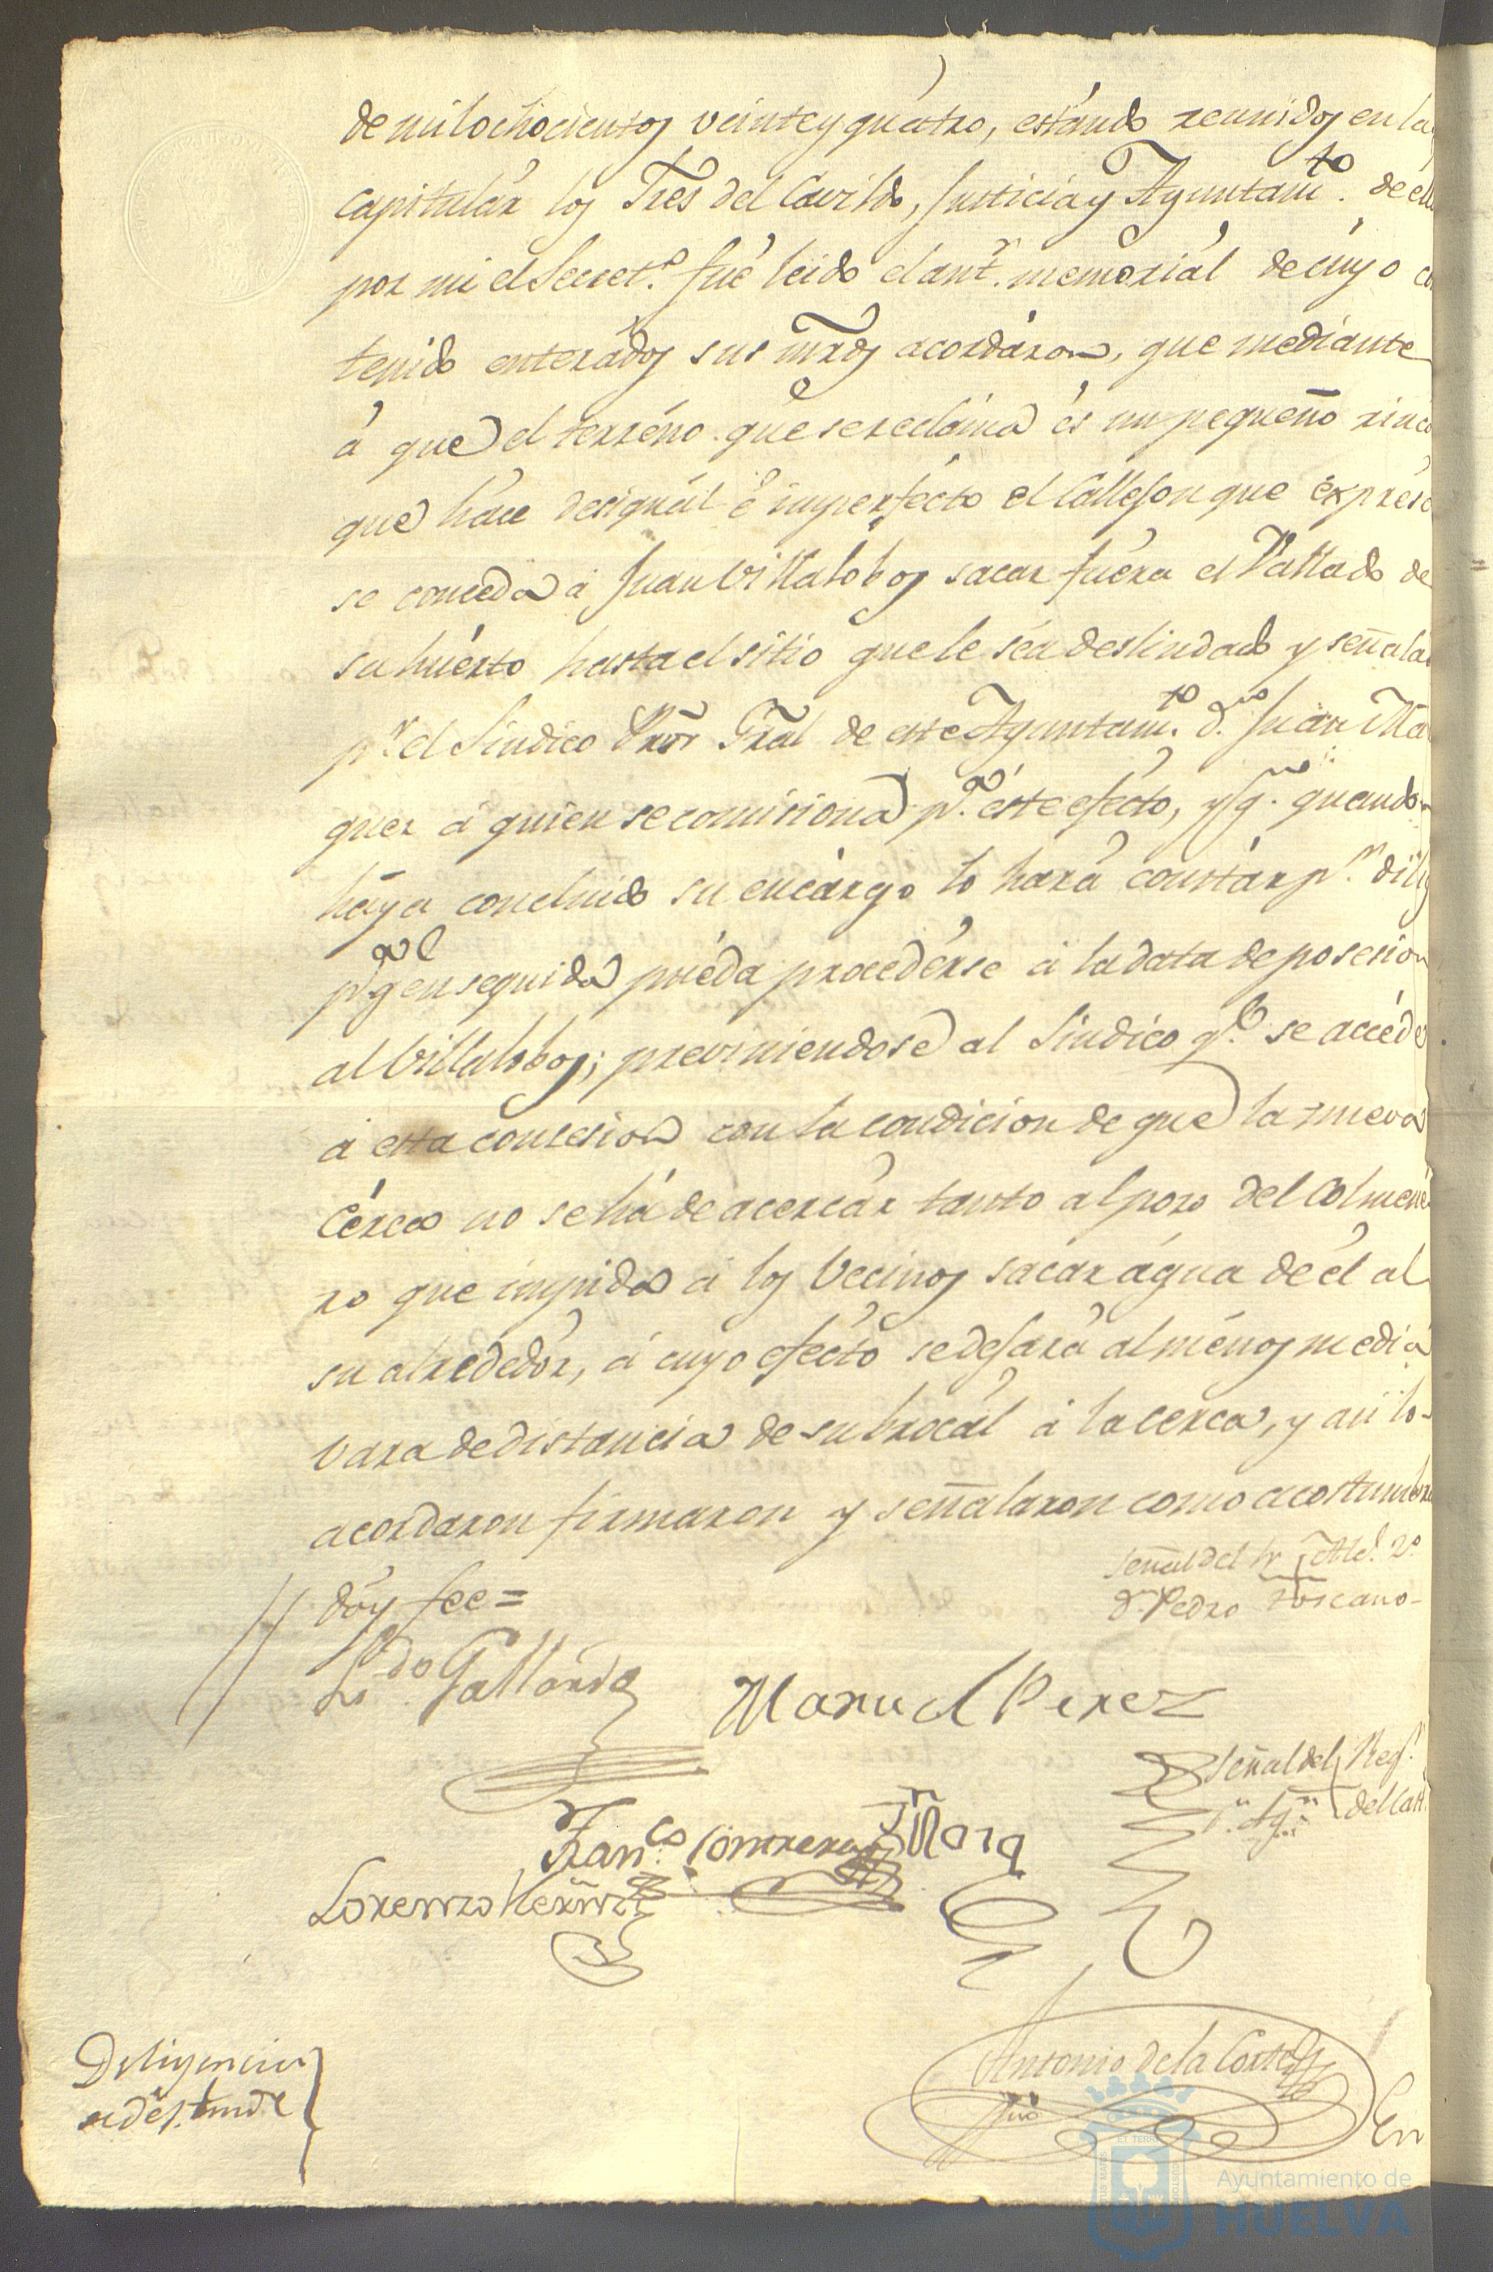 de mil ochocientos veinte y quatro, estándo reunidos en la
capitulár los Sres del Cavildo, Justicia y Ayuntamto. de ella
por mi el Secreto. fué leido el antr. memoriál de cuyo con
tenido enterádos sus mrds acordáron, que mediante
á que el terréno que se recláma és un pequeño rincó
que háce desiguál é imperfécto el Callejon que exprésa
se conceda á Juan Villalóbos sacar fuéra el Vallado de
su huérto hasta el sitio que le séa deslindado y señalád
pr. el Síndico Pror Gral de este Ayuntamto. dn. Juan Ma
guer á quien se comisiona pa. éste efécto, y qn. quando
háya concluido su encárgo lo hará constár pr. dilig
pa q en seguida puéda procedérse á la data de posesion
al Villalobos; previniendose al Sindico qe. se accéde
á esta concesion con la condicion de que la nueva
Cérca no se há de acercár tanto al pozo del Colmené
ro que impida á los Vecinos sacár água de él al
su alrededór, á cuyo efécto se dejará al ménos média
vara de distancia de su brocál á la cerca, y asi lo
acordaron firmaron y señalaron como acostumbra
dóy fee=
Señal del Sr Alce. 2o
Dn. Pedro Toscano
Lcdo. Gallárdo
Manuel Perez
Señal del Regr.
Dn. Agn. del Cast
Franco. Contreras
Jn Mora
Lorenzo Hernz
Antonio de la Corte
Srio
Diligencia
de deslinde
En
Ayuntamiento de
HUELVA